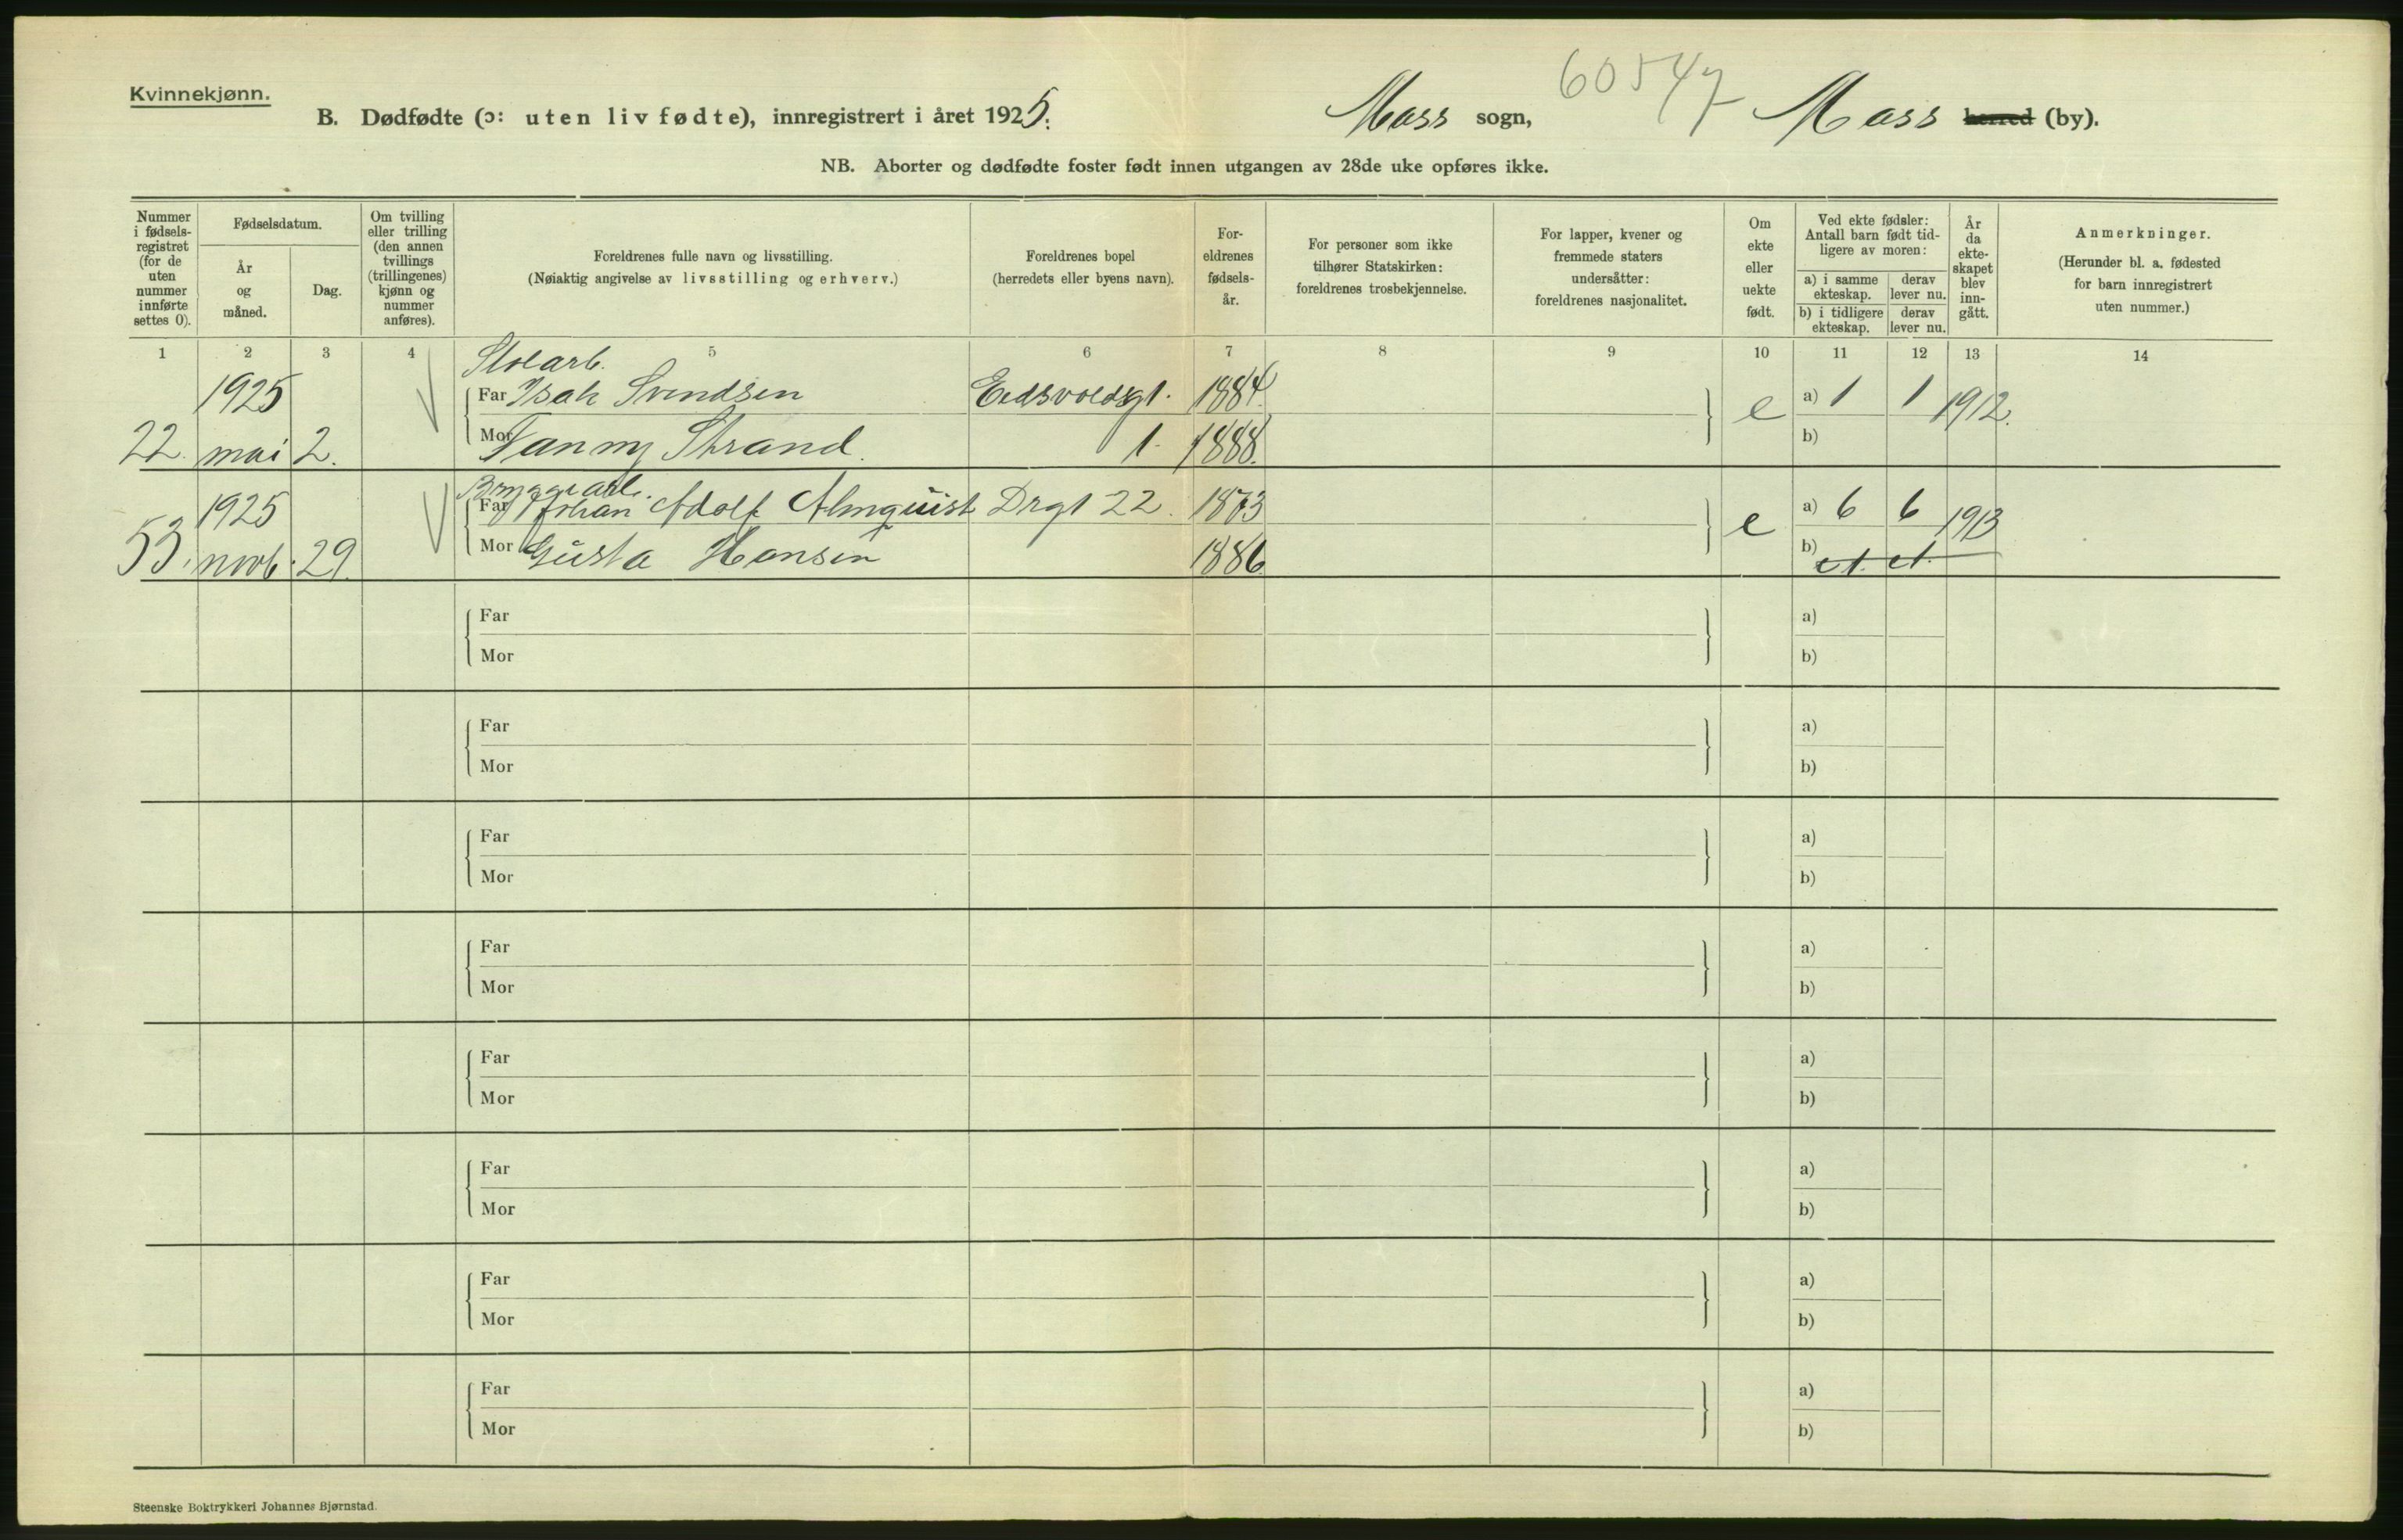 Kvinnekjønn.
60547
B. Dødfødte (ɔ: uten liv fødte), innregistrert i året 1925. Moss sogn, Moss herred (by).
NB. Aborter og dødfødte foster født innen utgangen av 28de uke opføres ikke.
Nummer i fødsels-registret (for de uten nummer innførte settes 0).
Fødselsdatum.
År og måned.
Dag.
Om tvilling eller trilling (den annen tvillings (trillingenes) kjønn og nummer anføres).
Foreldrenes fulle navn og livsstilling.
(Nøiaktig angivelse av livsstilling og erhverv.)
Foreldrenes bopel
(herredets eller byens navn).
For-eldrenes fødsels-år.
For personer som ikke tilhører Statskirken: foreldrenes trosbekjennelse.
For lapper, kvener og fremmede staters undersåtter: foreldrenes nasjonalitet.
Om ekte eller uekte født.
Ved ekte fødsler: Antall barn født tid-ligere av moren:
a) i samme ekteskap.
derav lever nu.
b) i tidligere ekteskap.
derav lever nu.
År da ekte-skapet blev inn-gått.
Anmerkninger.
(Herunder bl. a. fødested for barn innregistrert uten nummer.)
1 2 3 4 5 6 7 8 9 10 11 12 13 14
1925
Far Isak Svendsen Eidsvoldsgt. 1884 e a) 1 1 1912.
22. mai 2. Mor Fanny Strand. 1. 1888. b)
Bryggearb.
1925 Far Johan Adolf Almquist Drgt 22. 1873 e a) 6 6 1913
53. novb. 29. Mor Gusta Hansen 1886 b)
Far a)
Mor b)
Far a)
Mor b)
Far a)
Mor b)
Far a)
Mor b)
Far a)
Mor b)
Far a)
Mor b)
Far a)
Mor b)
Far a)
Mor b)
Steenske Boktrykkeri Johannes Bjørnstad.